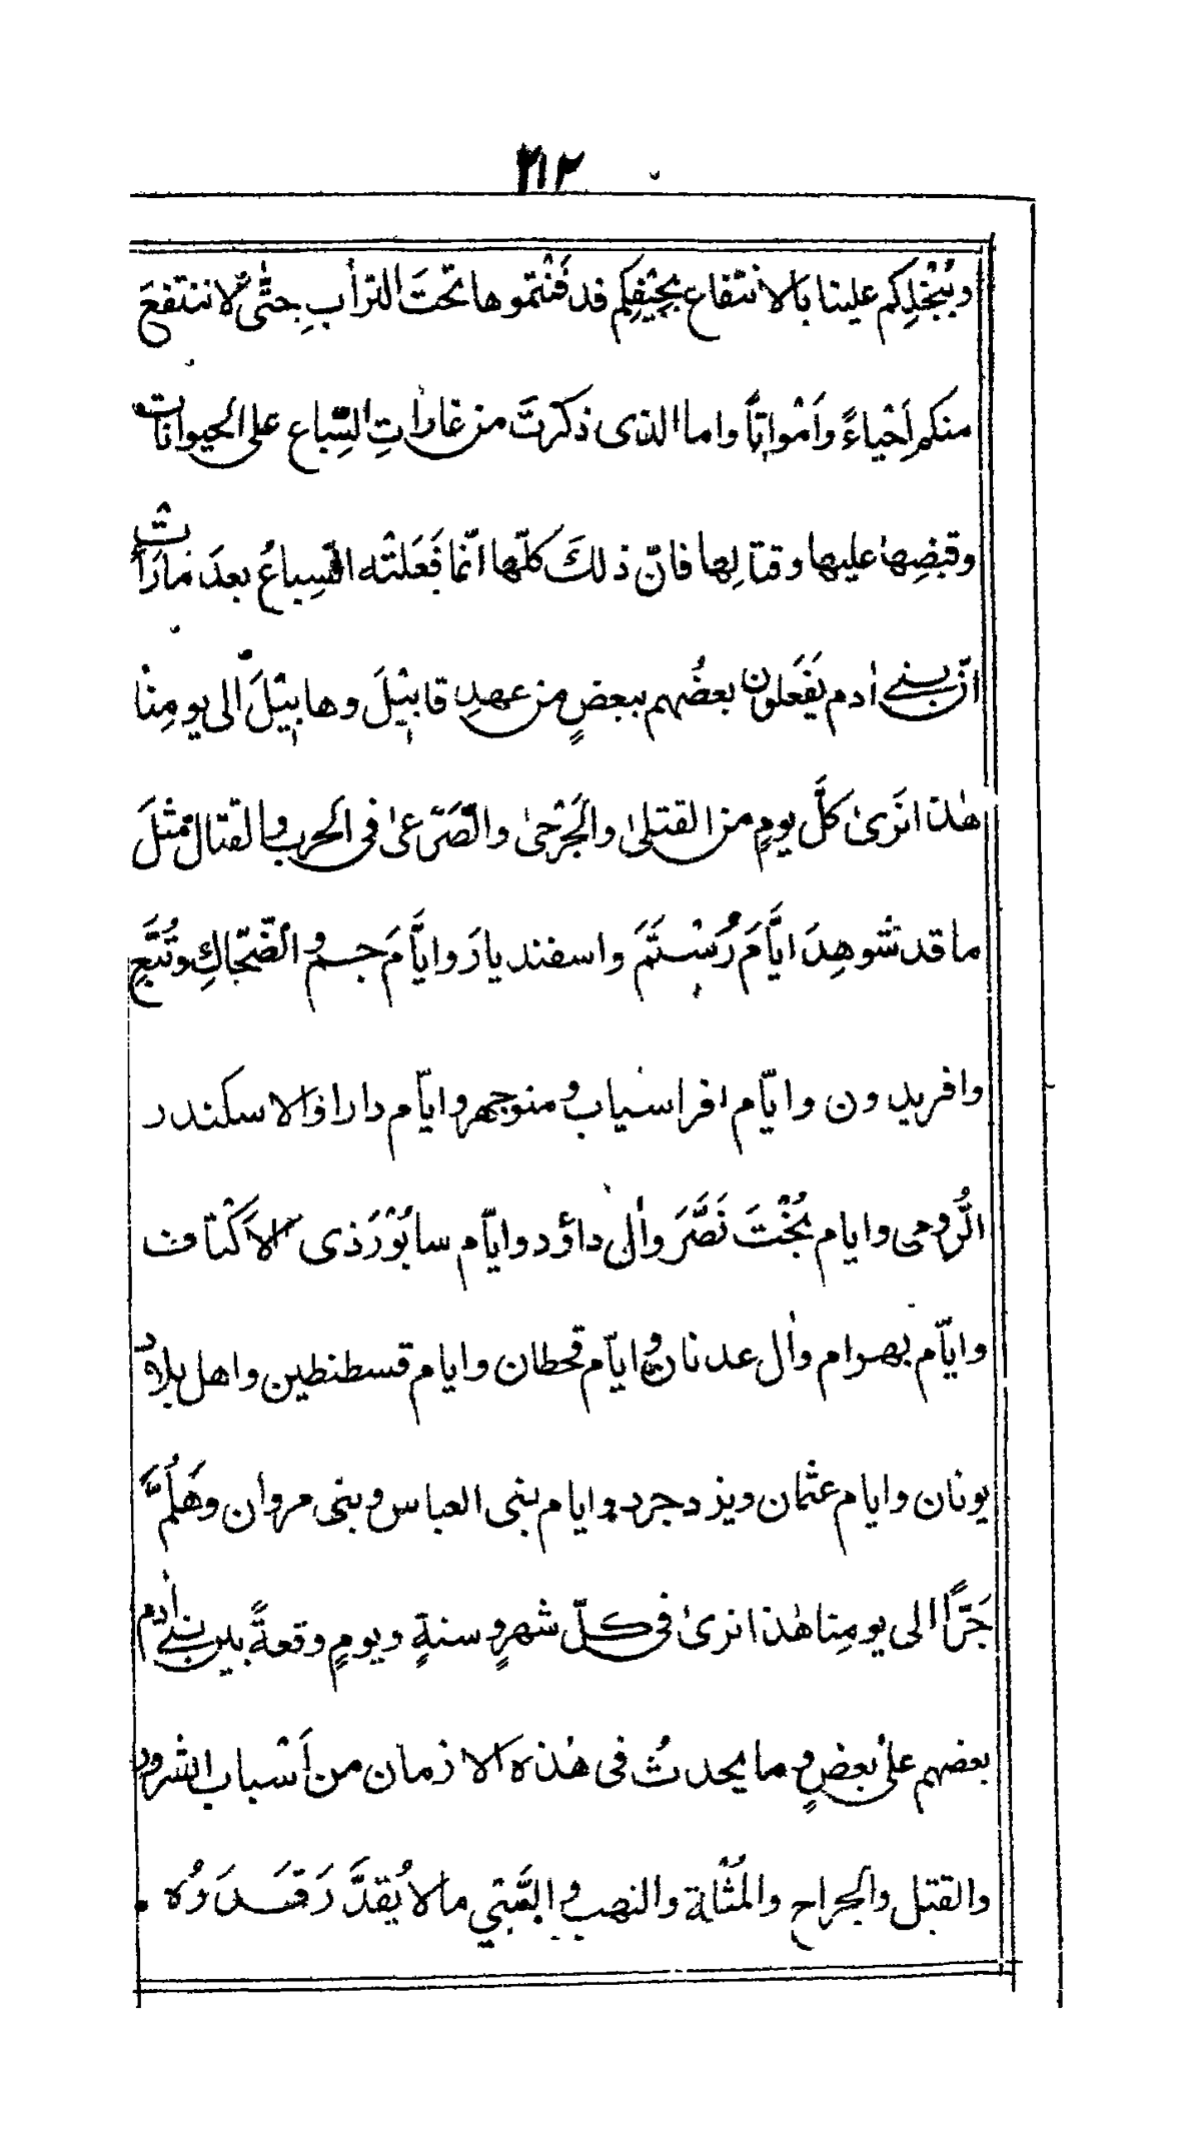 ٢١٢
وبُبُخْلِكم علينا بالانتفاع بجِيَفِكم فدفَنْتموها تحتَ التراب حتّى لاننتفعَ
منكم اَحْياءً واَمْواتاً واما الذى ذكرتَ من غاراتِ السِّباع على الحيوانات
وقبضِها عليها وقتالِها فانّ ذلكَ كلّها انّما فَعَلَتْه السِّباعُ بعدَ مارَاَتْ
انّ بنى اٰدم يَفْعَلون بعضُهم ببعضٍ من عهدِ قابيْلَ وهابيْلَ الى يومِنا
هٰذا نَرىٰ كلَّ يومٍ من القتلىٰ والجَرْحىٰ والصَّرْعىٰ فى الحرب والقتال مثلَ
ماقد شوهِدَ ايَّامَ رُسْتَمَ واسفنديارَ وايَّامَ جم والضّحّاكِ وتُبَّعٍ
وافريدون وايّام افراسياب ومنوجهر وايّام دارا والاسكندر
الرُّومى وايام بُخْتَ نَصَّرَ واٰل داؤد وايّام سابُوْرَذى الاَكْتاف
وايّام بهرام واٰل عدنان وايّام قحطان وايام قسطنطين واهل بلاد
يونان وايام عثمان ويزدجرد وايام بنى العباس وبنى مروان وهَلُمَّ
جَرًّا الى يومِنا هٰذا نرىٰ فى كلّ شهرٍ وسنةٍ ويومٍ وقعةً بين بنى اٰدم
بعضهم علىٰ بعضٍ وما يحدثُ فى هٰذه الازمان من اَسْباب الشرور
والقتل والجراح والمُثْلة والنهب والسَّبْي مالايُقدَّرقَدَرُه